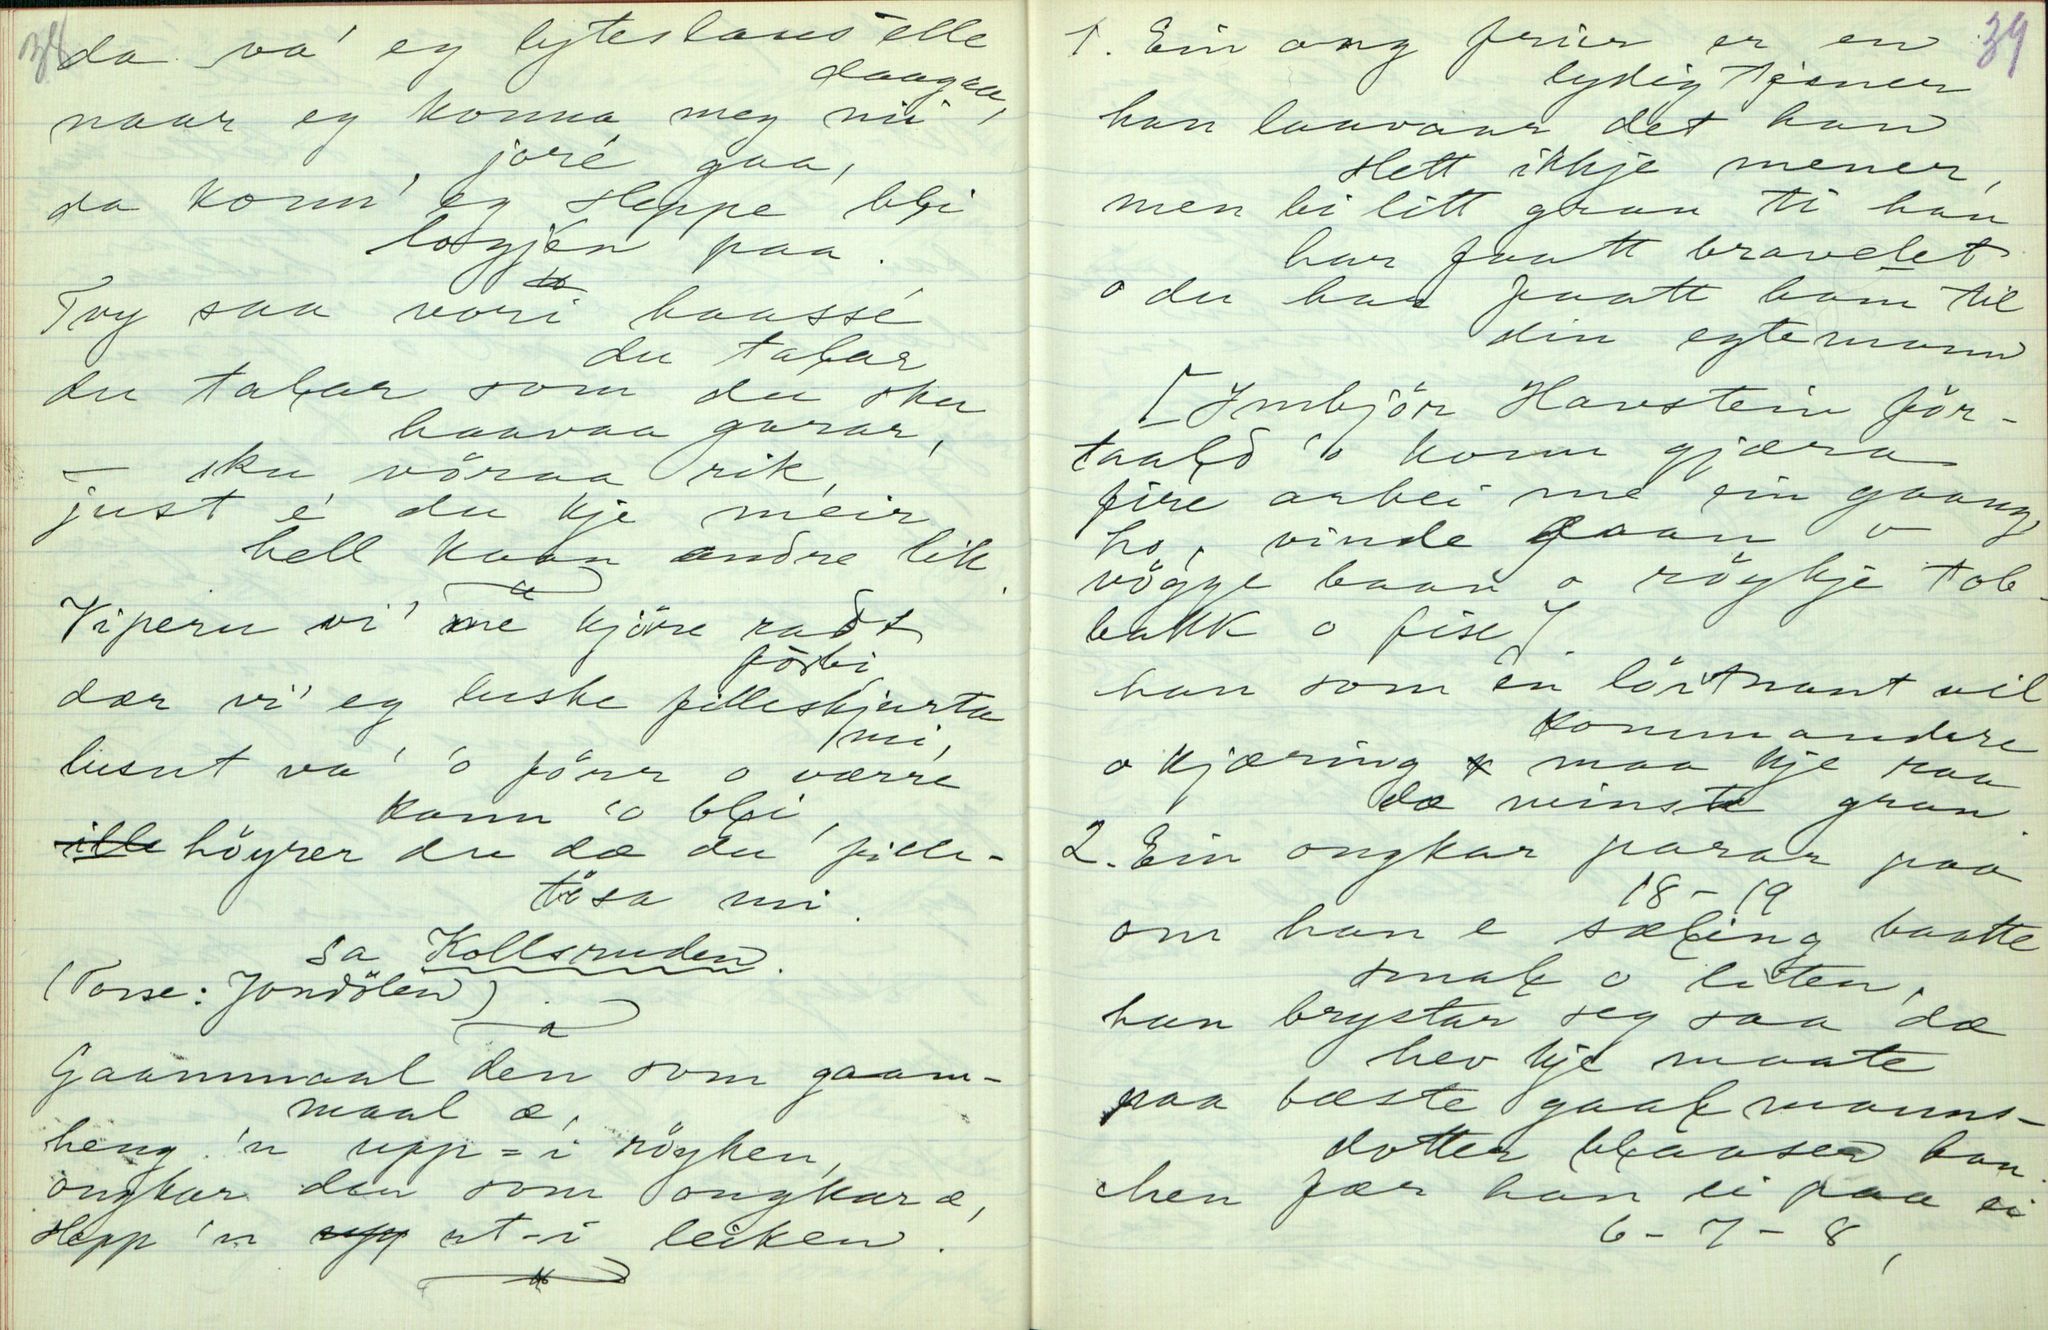 38
da va' eg lyteslaus elle
daagaa,
naar eg konna meg ni
jore gaa,
da konn' eg sleppe bli
løgjen paa.
Tvy saa vori haassé
du talar
du talar som du sku
haavaa garar,
– sku vöraa rik,
just é du kje meir
hell kaan andre lik.
Viperu vi' me kjöre radt
förbi
dær vi' eg huske filleskjurta
mi,
lusut va' 'o förr o værre
kann 'o bli,
höyrer du dæ du fille-
tösa mi.
sa Kollsruden.
(Torse: Jondölen)
Gaammaal den som gaam-
maal æ,
heng 'n upp=i röyken,
ongkar den som ongkar æ,
slepp 'n ut-i leiken.
39
1. Ein ong frier er en
lydig tjener
han laavaar det han
slett ikkje mener,
men bi litt gran ti han
har faatt bravelet
o du har faatt ham til
din egtemann
[Imbjör Havstein för-
taald 'o konn gjæra
fire arbei me ein gaang,
ho, vinde gaan o
vögge baan o röykje tob-
bakk o fise]
han som en löitnant vil
kommandere
o kjæring maa kje raa
dæ minste gran.
2. Ein ongkar parar paa
18–19
om han e sæling baatte
smal o liten,
han brystar seg saa dæ
hev kje maate
paa bæste gaalmanns-
dotter blaaser han.
hen fær han ei paa ei
6–7–8,